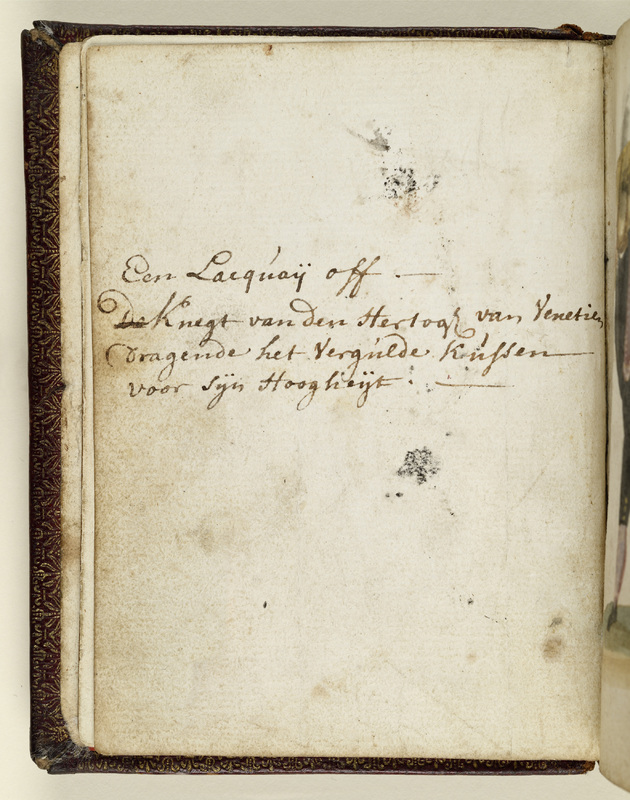 Een Lacquaij off —
De Knegt van den Hertog van Venetien
Dragende het Vergulde Kussen —
voor sijn Hoogheijt: —